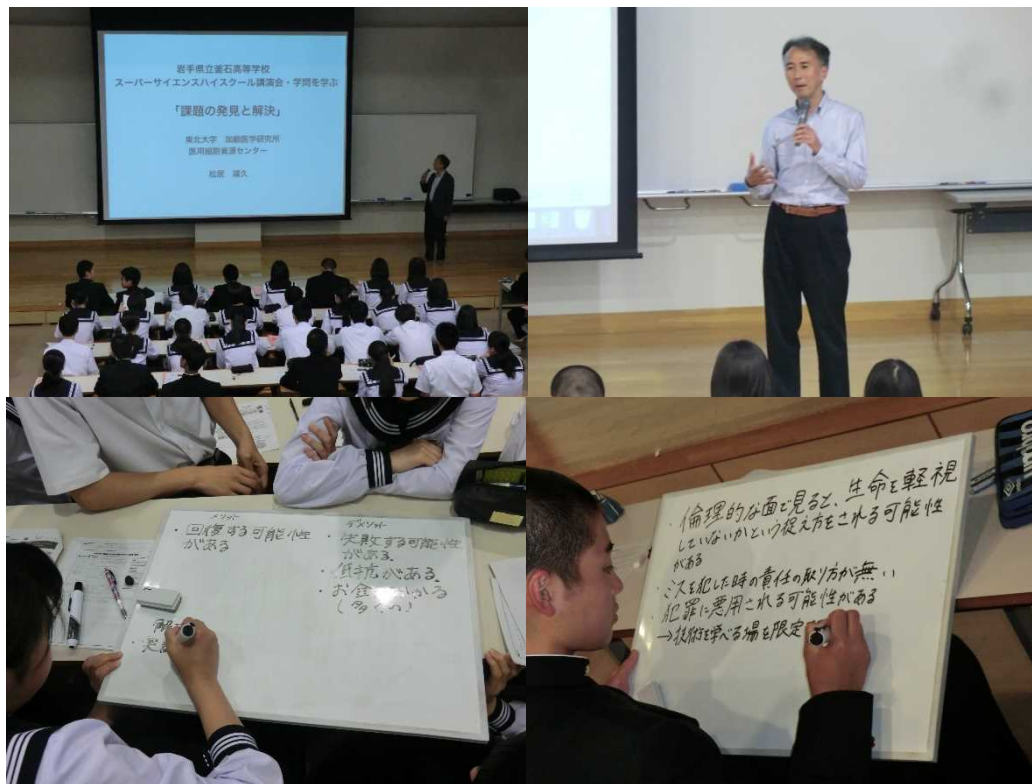 岩手県立釜石高等学校
スーパーサイエンスハイスクール講演会・学問を学ぶ
「課題の発見と解決」
東北大学 加齢医学研究所
医用細胞資源センター
メリット
・回復する可能性
がある
デメリット
・失敗する可能性
がある。
・抵抗がある。
・お金がかかる
(多い)
・倫理的な面で見ると、生命を軽視
していないかという捉え方をされる可能性
がある
・ミスを犯した時の責任の取り方が無い
・犯罪に悪用される可能性がある
→技術を学べる場を限定